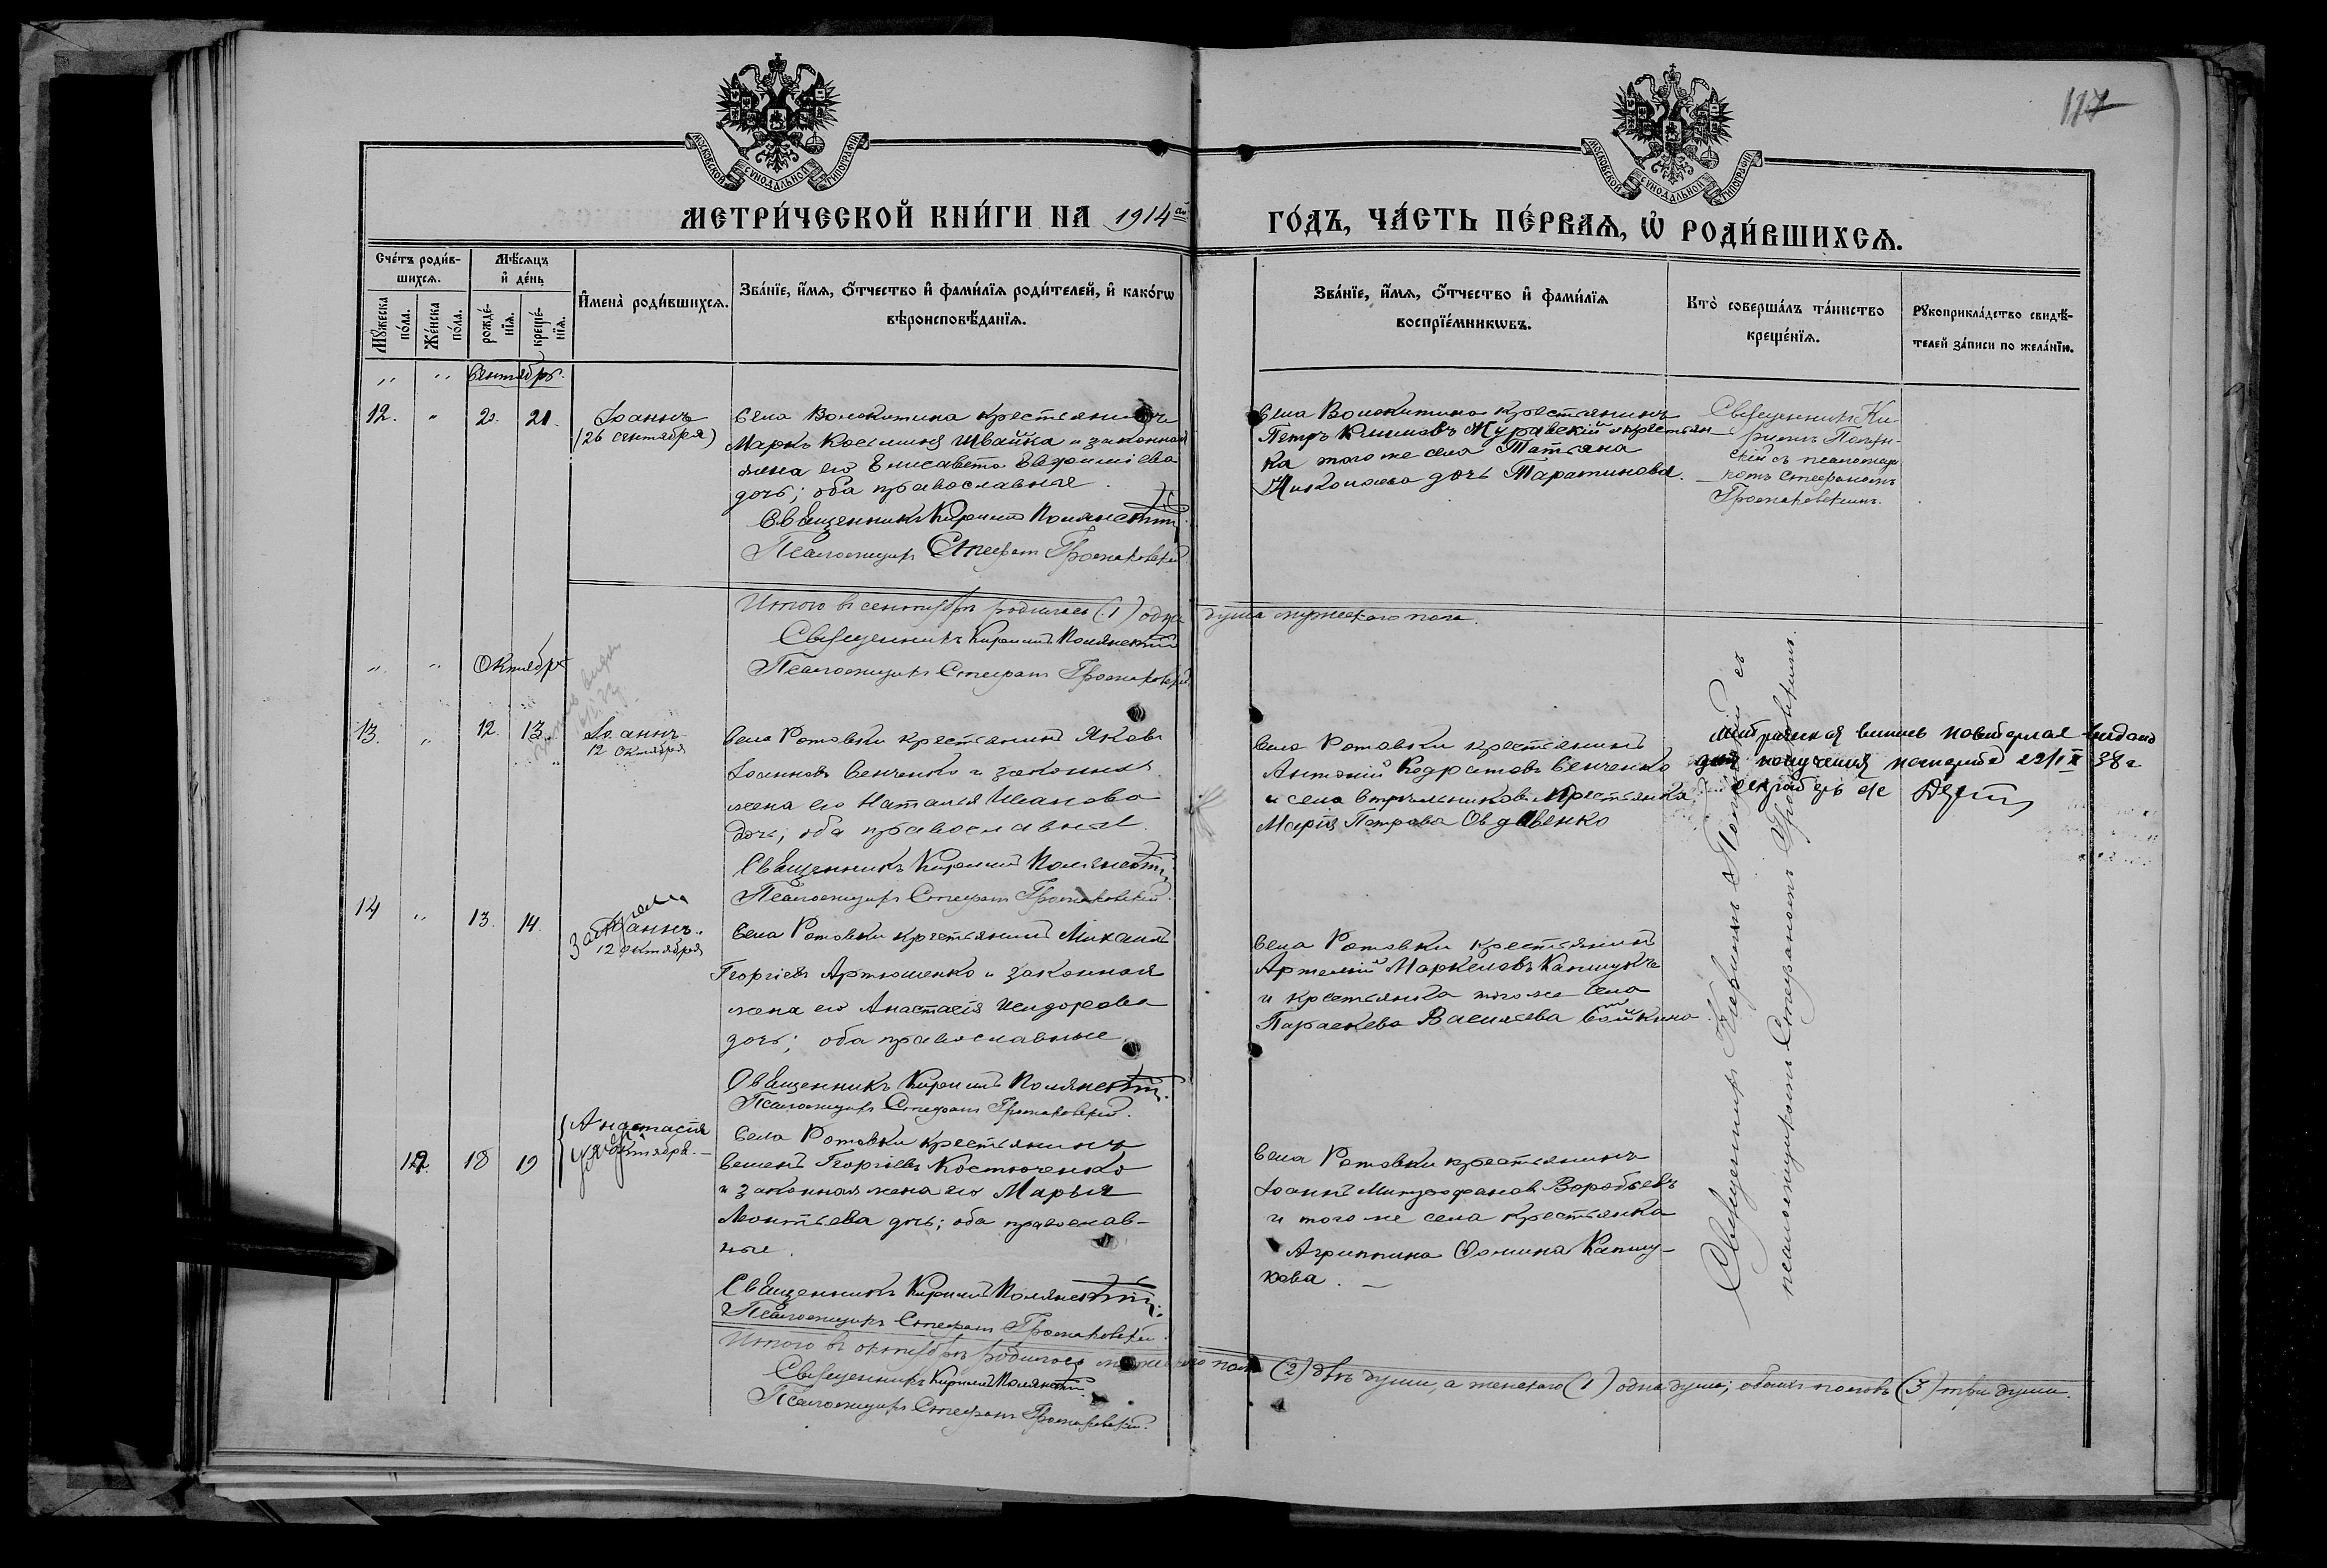 117
МОСКОВСКОЙ СѴНОДАЛЬНОЙ ТИПОГРАФІИ
МОСКОВСКОЙ СѴНОДАЛЬНОЙ ТИПОГРАФІИ
МЕТРИ́ЧЕСКОЙ КНИ́ГИ НА 1914 ГО́ДЪ, ЧА́СТЬ ПЕ́РВАѦ, Ѡ҆ РОДИ́ВШИХСѦ.
Сче́тъ роди́в-
шихсѧ.
Мꙋ́жеска по́ла.
Же́нска по́ла.
Мѣ́сѧцъ
и҆ де́нь
рожде́-
нїѧ.
креще́-
нїѧ.
И҆мена̀ роди́вшихсѧ.
Зва́нїе, и҆́мѧ, ѻ҆́тчество и҆ фами́лїѧ роди́телей, и҆ како́гѡ
вѣроисповѣ́данїѧ.
Зва́нїе, и҆́мѧ, ѻ҆́тчество и҆ фами́лїѧ
воспрїе́мникѡвъ.
Кто̀ соверша́лъ та́инство
креще́нїѧ.
Рꙋкоприкла́дство свидѣ́-
телей за́писи по жела́нїю.
" " Сентябрь.
12. " 20. 21. Іоаннъ
(26 сентября)
Села Волокитина крестьянинъ
Маркъ Косминъ Швайка и законная
жена его Елисавета Евфиміева
дочь; оба православные.
Священникъ Кириллъ Полянскій
Псаломщикъ Стефанъ
Села Волокитина крестьянинъ
Петръ Климовъ Журавскій и крестьян
ка того же села Татьяна
Николаева дочь Таратинова.
Священникъ Ки-
риллъ Полян-
скій съ псаломщи
комъ Стефаномъ
Итого въ сентябрѣ родилось (1) одна душа мужескаго пола.
Священникъ Кириллъ Полянскій
Псаломщикъ Стефанъ
" " Октябрь
13. " 12. 13. Іоаннъ
12 Октября
Села Ротовки крестьянинъ Яковъ
Іоанновъ Сенченко и законная
жена его Наталья Иванова
дочь; оба православные.
Священникъ Кириллъ Полянскій
Псаломщикъ Стефанъ
Села Ротовки крестьянинъ
Антоній Кодратовъ Сенченко
и села крестьянка
Марія Петрова Овдѣенко
видано
для получения 22/IX 38 г
14 " 13. 14. Іоаннъ.
12 октября
Села Ротовки крестьянинъ Михаилъ
Георгіевъ Артюшенко и законная
жена его Анастасія Исидорова
дочь; оба православные.
Священникъ Кириллъ Полянскій.
Псаломщикъ Стефанъ
Села Ротовки крестьянинъ
Артемій Маркеловъ
и крестьянка того же села
Параскева Васильева
12. 18 19 Анастасія
октября.
Села Ротовки крестьянинъ
Семенъ Георгіевъ Костюченко
и законная жена его Марья
Леонтьева дочь; оба православ-
ные.
Священникъ Кириллъ Полянскій.
Псаломщикъ Стефанъ
Села Ротовки крестьянинъ
Іоаннъ Митрофановъ Воробьевъ
и того же села крестьянка
Агриппина Фомина Капшу-
кова.
Священникъ Кириллъ Полянскій съ
псаломщикомъ Стефаномъ
Итого въ октябрѣ родилось мужескаго пола (2) двѣ души, а женскаго (1) одна душа; обоихъ половъ (3) три души.
Священникъ Кириллъ Полянскій
Псаломщикъ Стефанъ